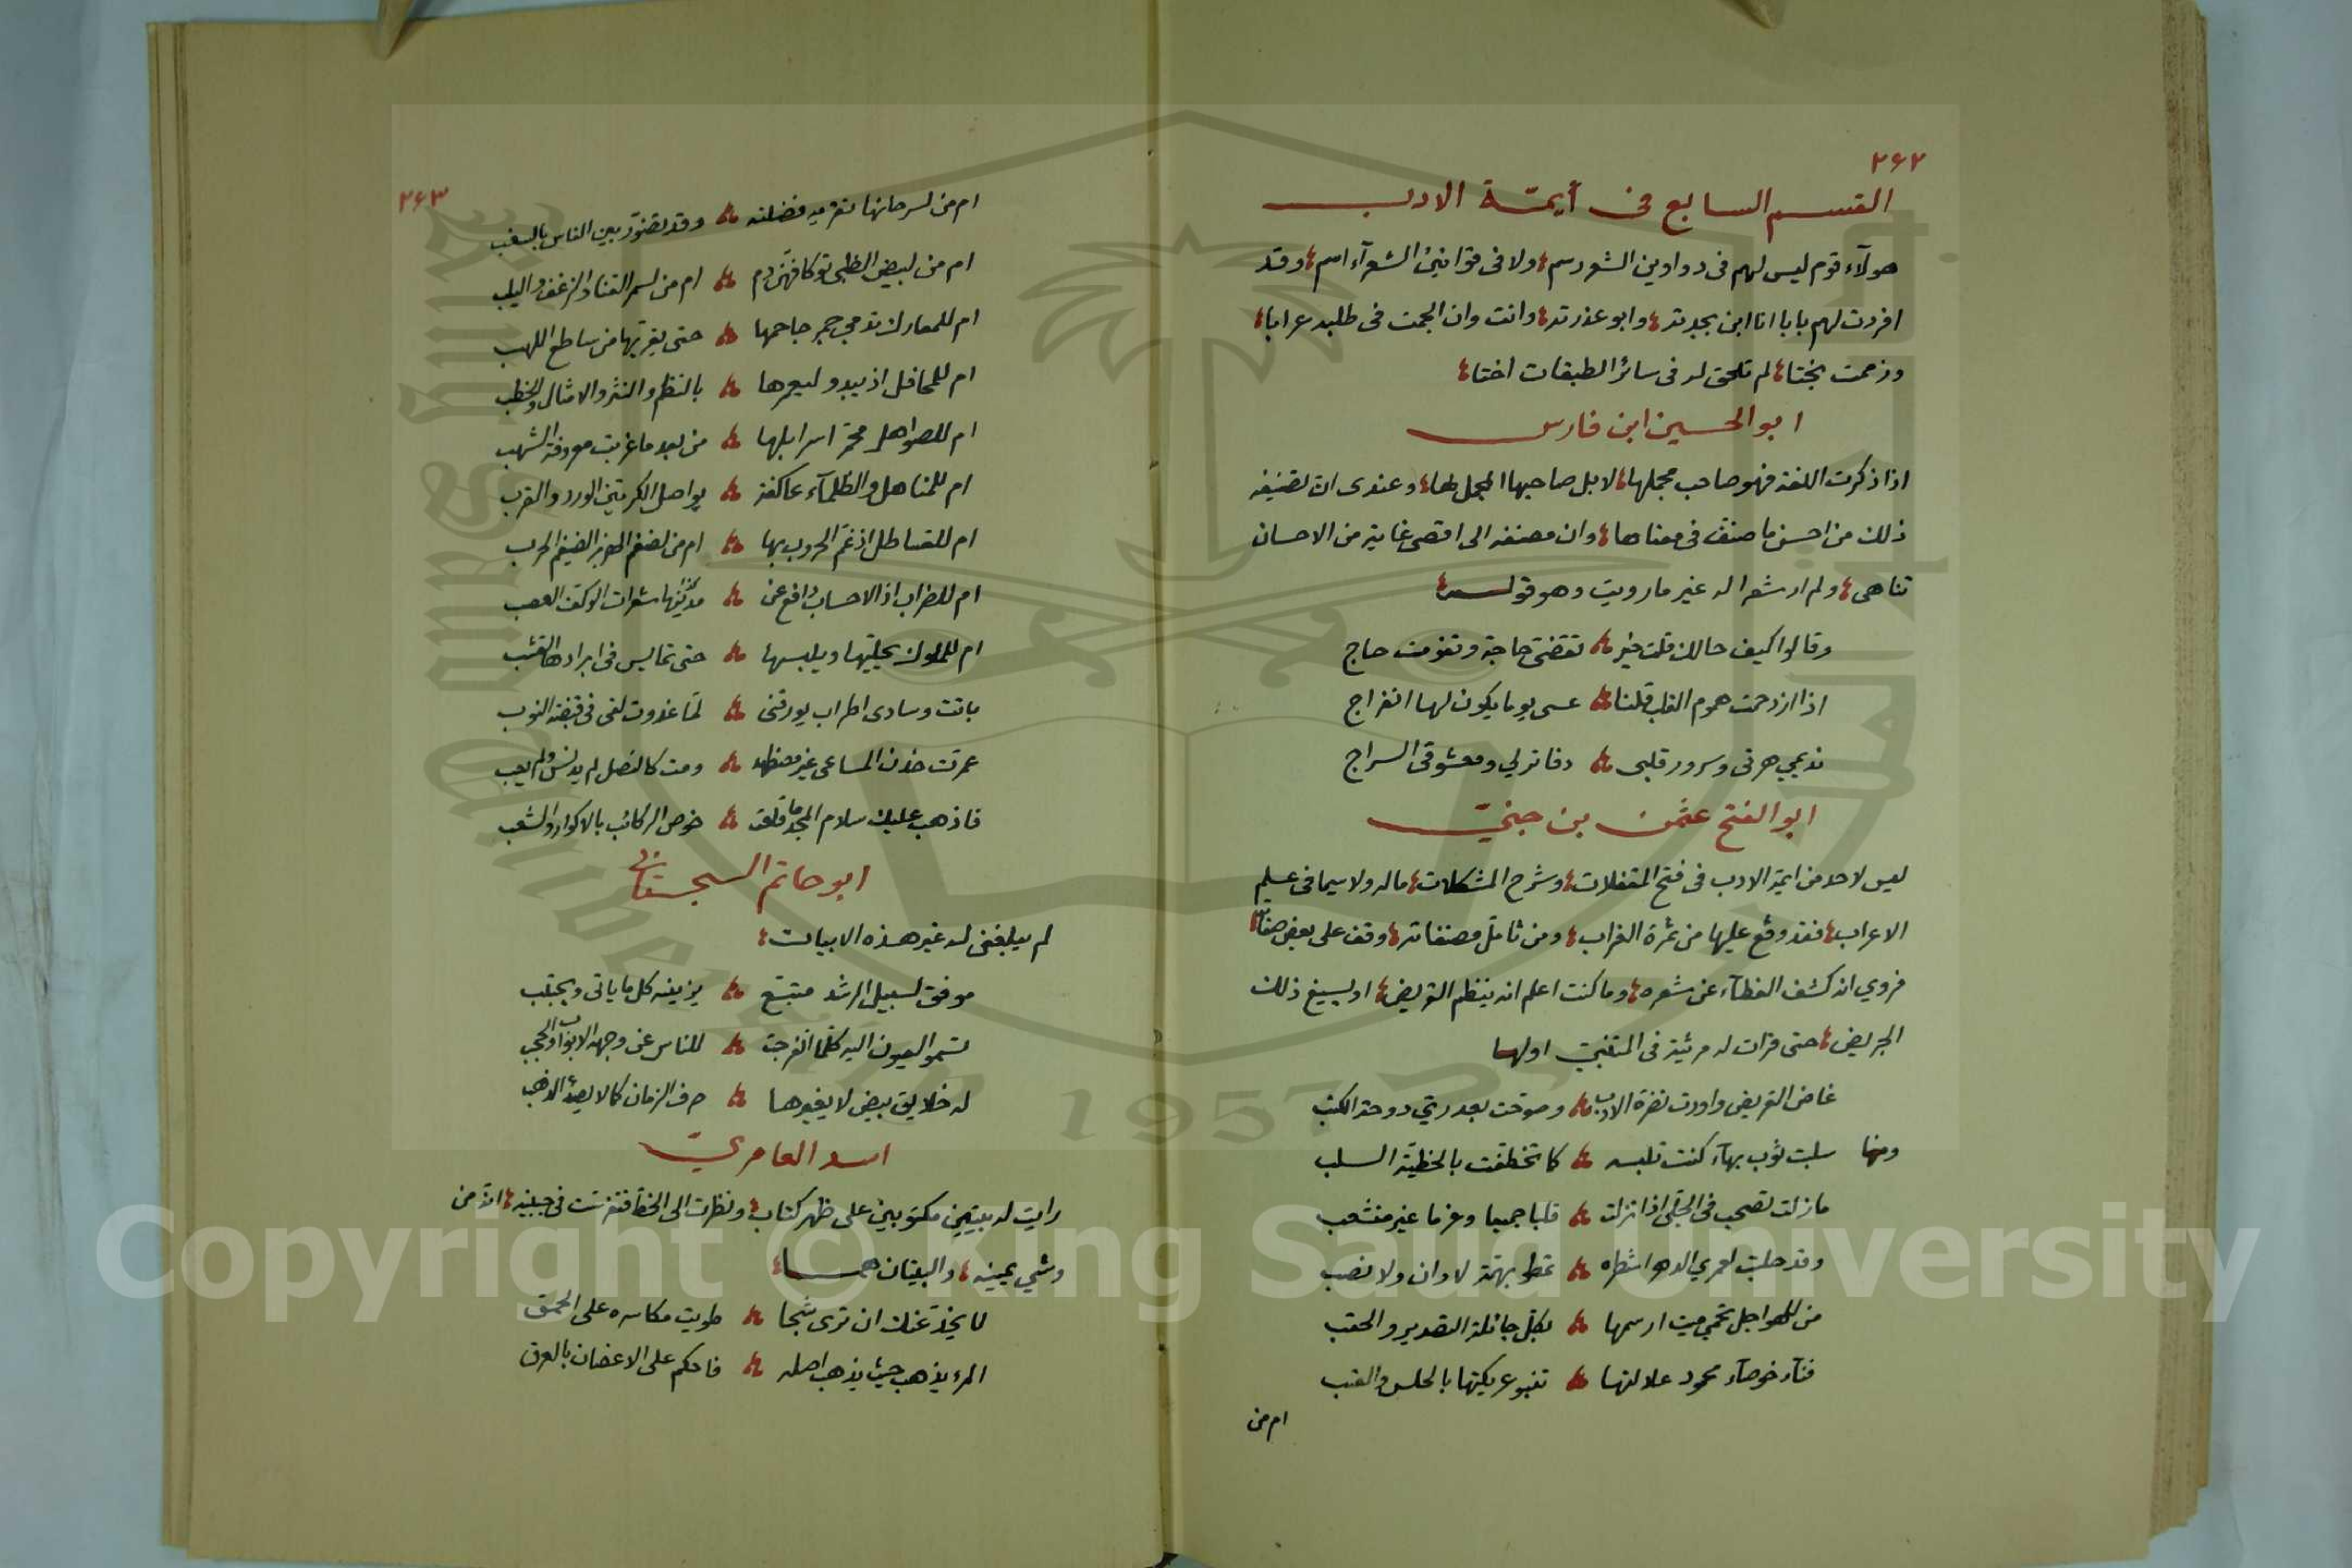 ٢٦٢
القسم السابع في أيمّة الادب
هولآء قوم ليس لهم فى دواوين الشعر رسم؛ ولا فى قوانين الشعرآء اسم؛ وقد
افردت لهم بابا انا ابن بجدته؛ وابو عذرته؛ وانت وان الجمت فى طلبه عرابا؛
وزحمت بختا؛ لم تلحق له فى سائر الطبقات اختا؛
ابو الحسين ابن فارس
اذا ذكرت اللغة فهو صاحب مجملها؛ لا بل صاحبها المجمل لها؛ وعندى ان تصنيفه
ذلك من احسن ما صنّف فى معناها؛ وان مصنفه الى اقصى غاية من الاحسان
تناهى؛ ولم ار شعرا له غير ما رويت وهو قوله؛
وقالوا كيف حالك قلت خير تقضّى حاجة وتفوت حاج
اذا ازدحمت هموم القلب قلنا عسى يوما يكون لها انفراج
نديمي هرتى وسرور قلبى دفاتر لي ومعشوقى السراج
ابو الفتح عثمن بن جنيّ
ليس لاحد من ايمّة الادب فى فتح المقفلات؛ وشرح المشكلات؛ ماله ولا سيما فى علم
الاعراب؛ فقد وقع عليها من ثمرة الغراب؛ ومن تامّل مصنفاته؛ وقف على بعض صفاته؛
فروي انه كشف الغطآء عن شعره؛ وما كنت اعلم انه ينظم القريض؛ او يسيغ ذلك
الجريض؛ حتى قرات له مرثية فى المتنبّي اولها
غاض القريض واودت نضرة الادب وصوّحت بعد ريّ دوحة الكتب
ومنها سلبت ثوب بهآء كنت تلبسه كما تخطفت بالخطيّة السلب
ما زلت تصحب فى الجلّى اذا نزلت قلبا جميعا وعزما غير منشعب
وقد حلبت لعمري الدهر اشطره تمطو بهمّة لا وان ولا نصب
من للهواجل تحمي ميت ارسمها بكلّ جائلة التصدير والحقب
قبّآء خوصآء محمود علالتها تنبو عريكتها بالحلس والقتب
ام من
٢٦٣
ام من لسرحانها تقريه فضلته وقد تضوّر بين الناس بالسغب
ام من لبيض الظبى توكافهنّ دم ام من لسمر القنا والزغف واليلب
ام للمعارك تدمي جمر جاحمها حتى يقرّبها من ساطع اللهب
ام للمحافل اذ يبدو ليعمرها بالنظم والنثر والامثال والخطب
ام للصواهل محمرّا سرابلها من بعد ما غربت معروفة الشهب
ام للمناهل والظلمآء عاكفة يواصل الكرّتين الورد والقرب
ام للقساطل اذ غمّ الحروب بها ام من لضغم الهزبر الضيغم الحرب
ام للضراب اذ الاحساب دافع عن شعرات الوكف العصب
ام للملوك يحليّها ويلبسها حتى تمايس فى ابرادها القشب
باتت وسادى اطراب يورقنى لمّا غدوت لقى فى قبضة النوب
عمرت خدن المساعى غير مضطهد ومت كالنصل لم يدنس ولم يعب
فاذهب عليك سلام المجد ما قلقت خوص الركائب بالاكوار والشعب
ابو حاتم السجستانى
لم يبلغنى له غير هذه الابيات؛
موفق لسبيل الرشد متبع يزينه كل ما ياتى ويجتنب
تسمو العيون اليه كلّما انفرجت للناس عن وجهه الابواب والحجب
له خلايق بيض لا يغيرها صرف الزمان كما لا يصدئ الذهب
اسد العامريّ
رايت له بيتين مكتوبين على ظهر كتاب؛ ونظرت الى الخطّ فتفرّست فى جبينه؛ انّه من
وشي يمينه؛ والبيتان هما؛
لا يخدعنك ان ترى شبحا طويت مكاسره على الحمق
المرء يذهب حيث يذهب اصله فاحكم على الاغصان بالعرق
Copyright © King Saud University
1957